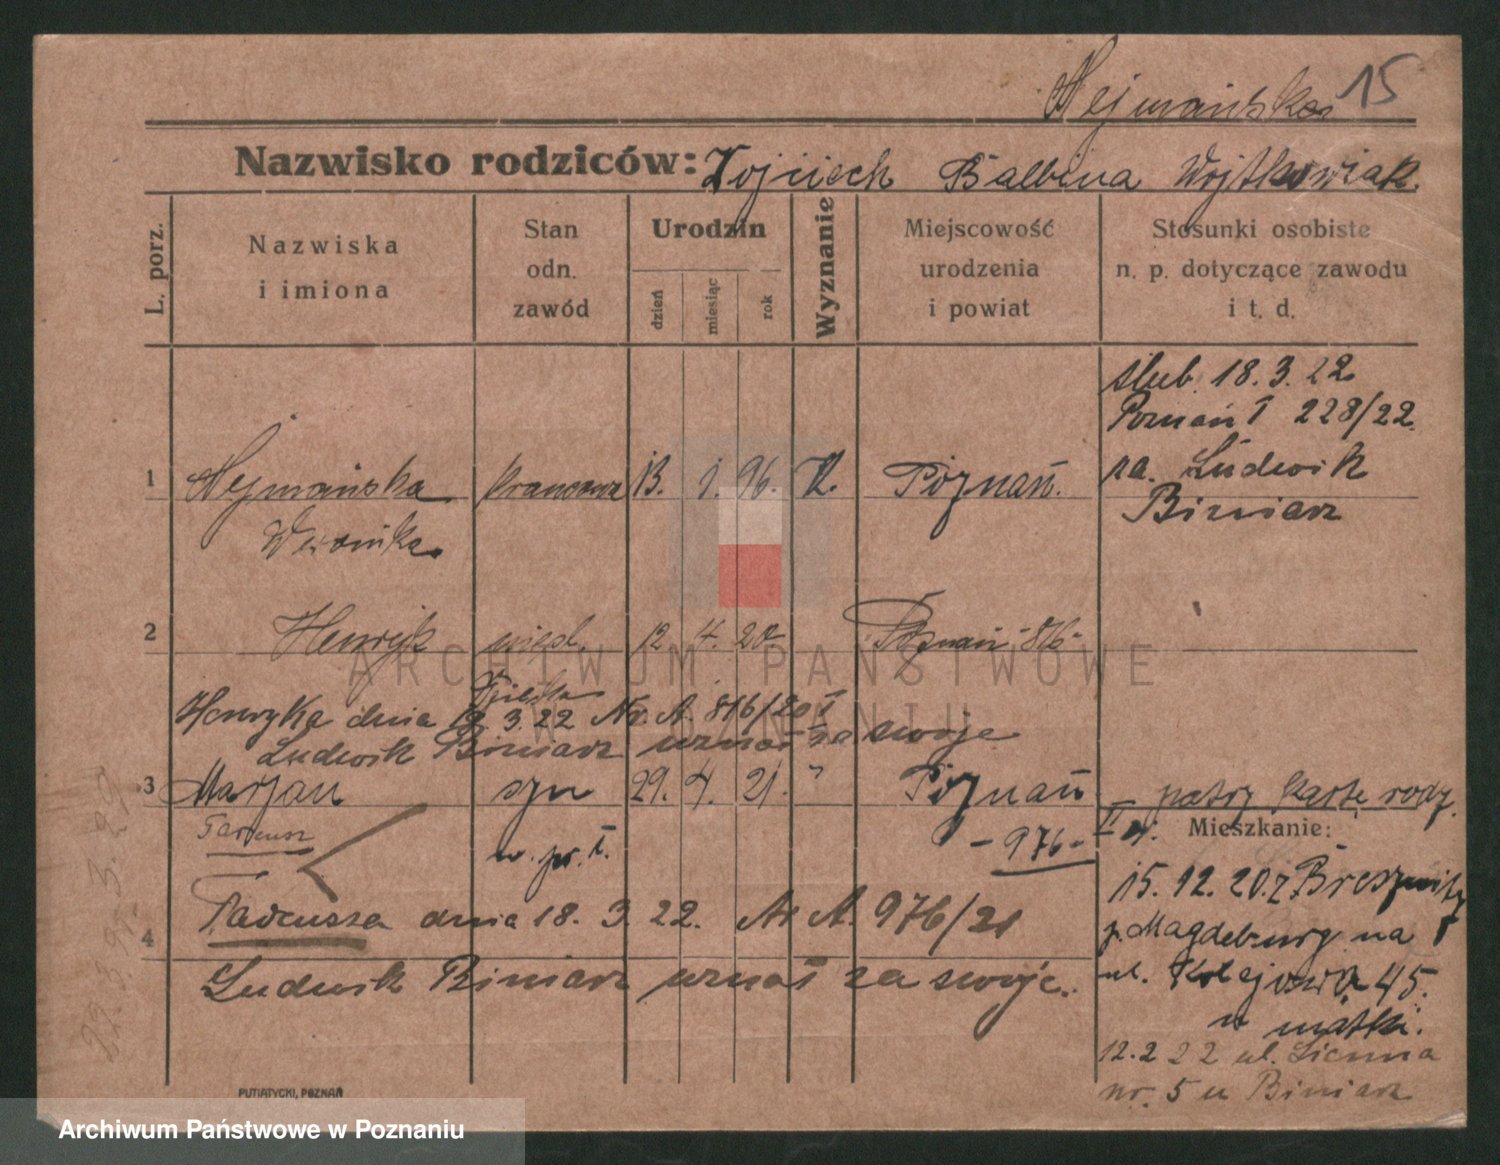 Nejmańska 15
Nazwisko rodziców: Wojciech Balbina Wojtkowiak
L. porz.
Nazwiska
i imiona
Stan
odn.
zawód
Urodzin
dzień
miesiąc
rok
Wyznanie
Miejscowość
urodzenia
i powiat
Stosunki osobiste
n. p. dotyczące zawodu
i t. d.
ślub 18.3.22
Poznań I 228/22.
za Ludwik
Biniarz
1 Nejmańska 13. 1. 96. K. Poznań.
Weronika
2 Henryk 12 4. 20 Poznań - 816 -
Henryka dnia 3. 22 Nr. A. 816/20 I
Ludwik Biniarz uznał za swoje
3 Marjan syn 29. 4. 21. " Poznań
- 976 -
Tadeusz
w. pr. I.
patrz kartę rodz.
Mieszkanie:
15.12.20 z
p. Magdeburg na
ul. Kolejowa 45.
u matki.
12.2 22 ul.
nr. 5 u Biniarz
4 Tadeusza dnia 18. 3. 22. Nr A. 976/21
Ludwik Biniarz uznał za swoje.
PUTIATYCKI, POZNAŃ
ARCHIWUM PAŃSTWOWE
W POZNANIU
Archiwum Państwowe w Poznaniu